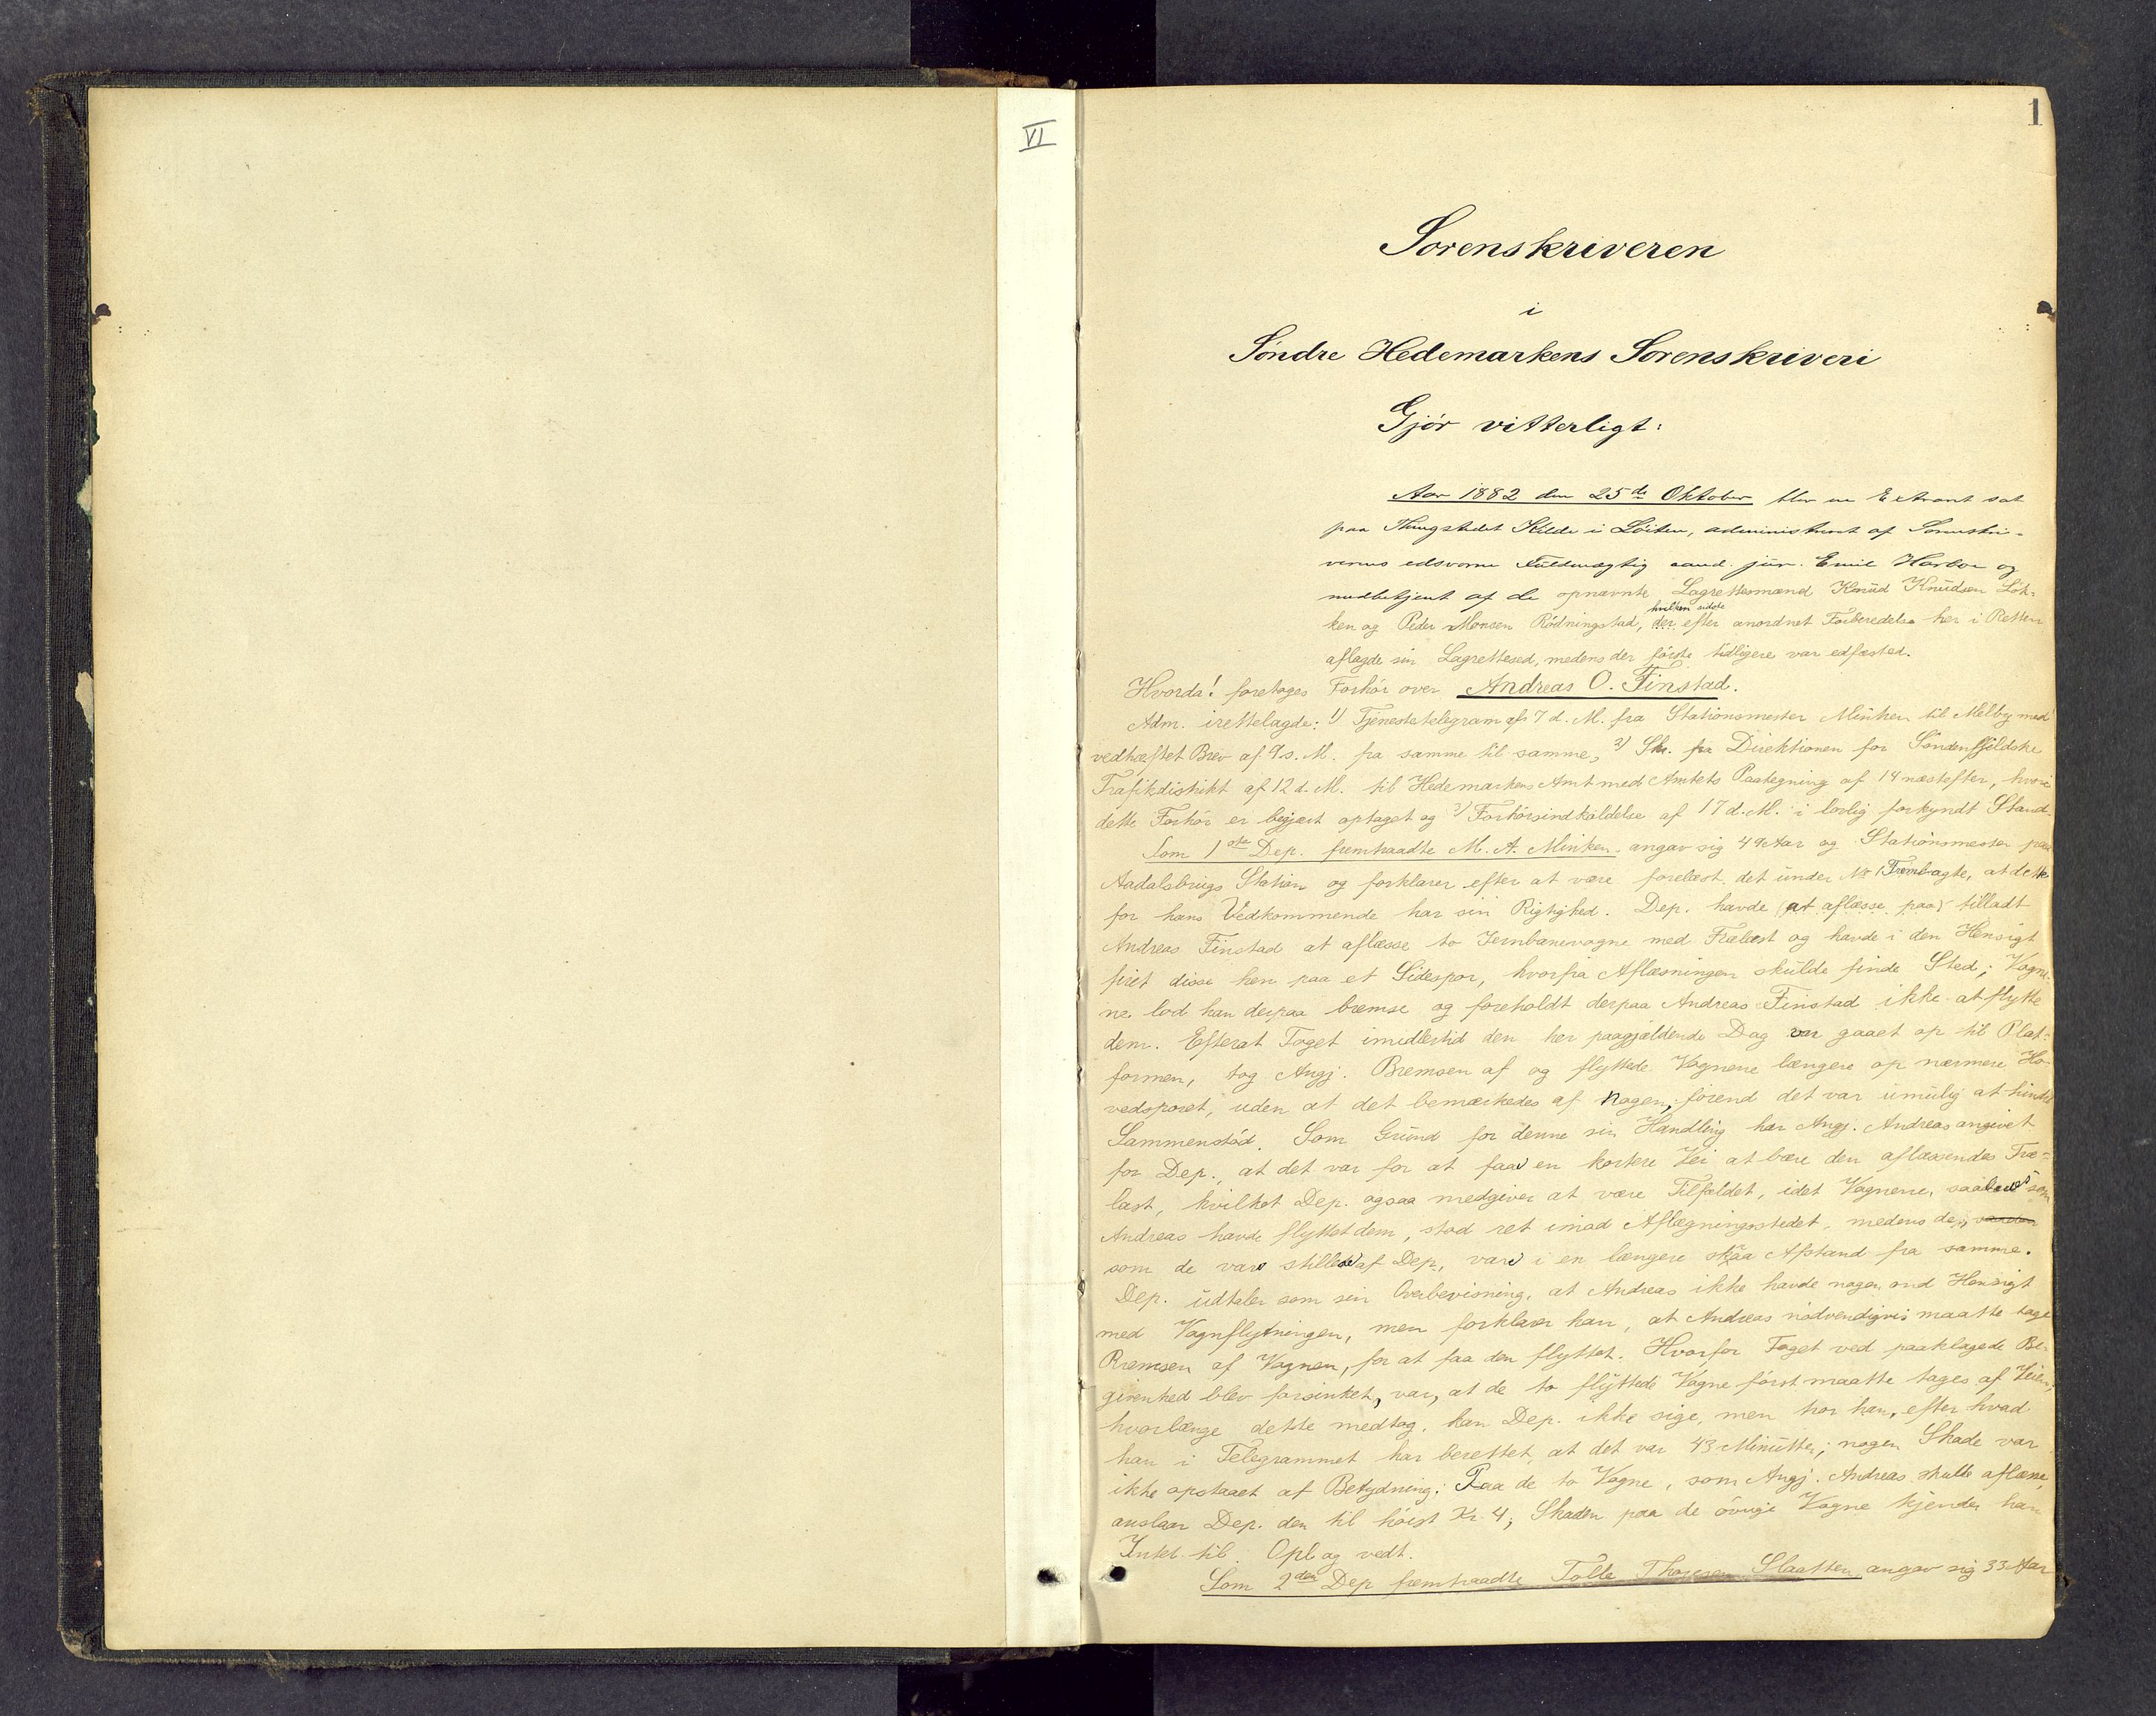 VI
1
Sorenskriveren
i
Söndre Hedemarkens Sorenskriveri
Gjör vitterligt:
Aar 1882 den 25de Oktober blev en Extraret sat
paa Thingstedet Kilde i Löiten, administreret af Sorenskri-
verens edsvorne Fuldmægtig cand. jur. Emil Harboe og
medbetjent af de opnævnte Lagrettesmænd Knud Knudsen Lök-
hvilken sidste
ken og Peder Monsen Rödningstad, der efter anordnet Forberedelse her i Retten
aflagde sin Lagretteséd, medens der förste tidligere var edfæsted.
Hvorda! foretoges Forhör over Andreas O. Finstad.
Adm. irettelagde: 1) Tjenestetelegram af 7 d. M. fra Stationsmester Minken til Melby med
vedhæftet Brev af 9 s. M. fra samme til samme, 2) Skr. fra Direktionen for Söndenfjeldske
Trafikdistrikt af 12 d. M. til Hedemarkens Amt med Amtets Paategning af 14 næstefter, hvori
dette Forhör er begjært optaget og 3) Forhörsindkaldelse af 17 d. M. i lovlig forkyndt Stand.
Som 1ste Dep. fremtraadte M. A. Minken, angav sig 49 Aar og Stationsmester paa
Aadalsbrugs Station og forklarer efter at være forelæst det under No 1 Fremlagte, at dette
for hans Vedkommende har sin Rigtighed. Dep. havde (at aflæsse paa) tilladt
Andreas Finstad at aflæsse to Jernbanevogne med Trælast og havde i den Hensigt
firet disse hen paa et Sidespor, hvorfra Aflæsningen skulde finde Sted; Vogne-
ne lod han derpaa bremse og foreholdt derpaa Andreas Finstad ikke at flytte
dem. Efterat Toget imidlertid den her paagjældende Dag var gaaet op til Plat-
formen, tog Angj. Bremsen af og flyttede Vognene længere op nærmere Ho-
vedsporet, uden at det bemærkedes af Nogen, förend det var umulig at hindre
Sammenstöd. Som Grund for denne sin Handling har Angj. Andreas angivet
for Dep., at det var for at faa en kortere Vei at bære den aflæssendes Træ-
last, hvilket Dep. ogsaa medgiver at være Tilfældet, idet Vognene, saaledes som
Andreas havde flyttet dem, stod ret imod Aflægningsstedet, medens de,
som de vare stillede af Dep., vare i en længere skraa Afstand fra samme.
Dep. udtaler som sin Overbevisning, at Andreas ikke havde nogen ond Hensigt
med Vognflytningen, men forklarer han, at Andreas nödvendigvis maatte tage
Bremsen af Vognen, for at faa den flyttet. Hvorfor Toget ved paaklagede Be-
givenhed blev forsinket, var, at de to flyttede Vogne först maatte tages af Veien,
hvorlænge dette medtog, kan Dep. ikke sige, men tror han, efter hvad
han i Telegrammet har berettet, at det var 43 Minutter; nogen Skade var
ikke opstaaet af Betydning: Paa de to Vogne, som Angj. Andreas skulle aflæsse,
anslaar Dep. den til höist Kr. 4; Skaden paa de övrige Vogne kjender han
Intet til. Opl. og vedt.
Som 2den Dep fremtraadte Tolle Thoresen Slaatten angav sig 33 Aar